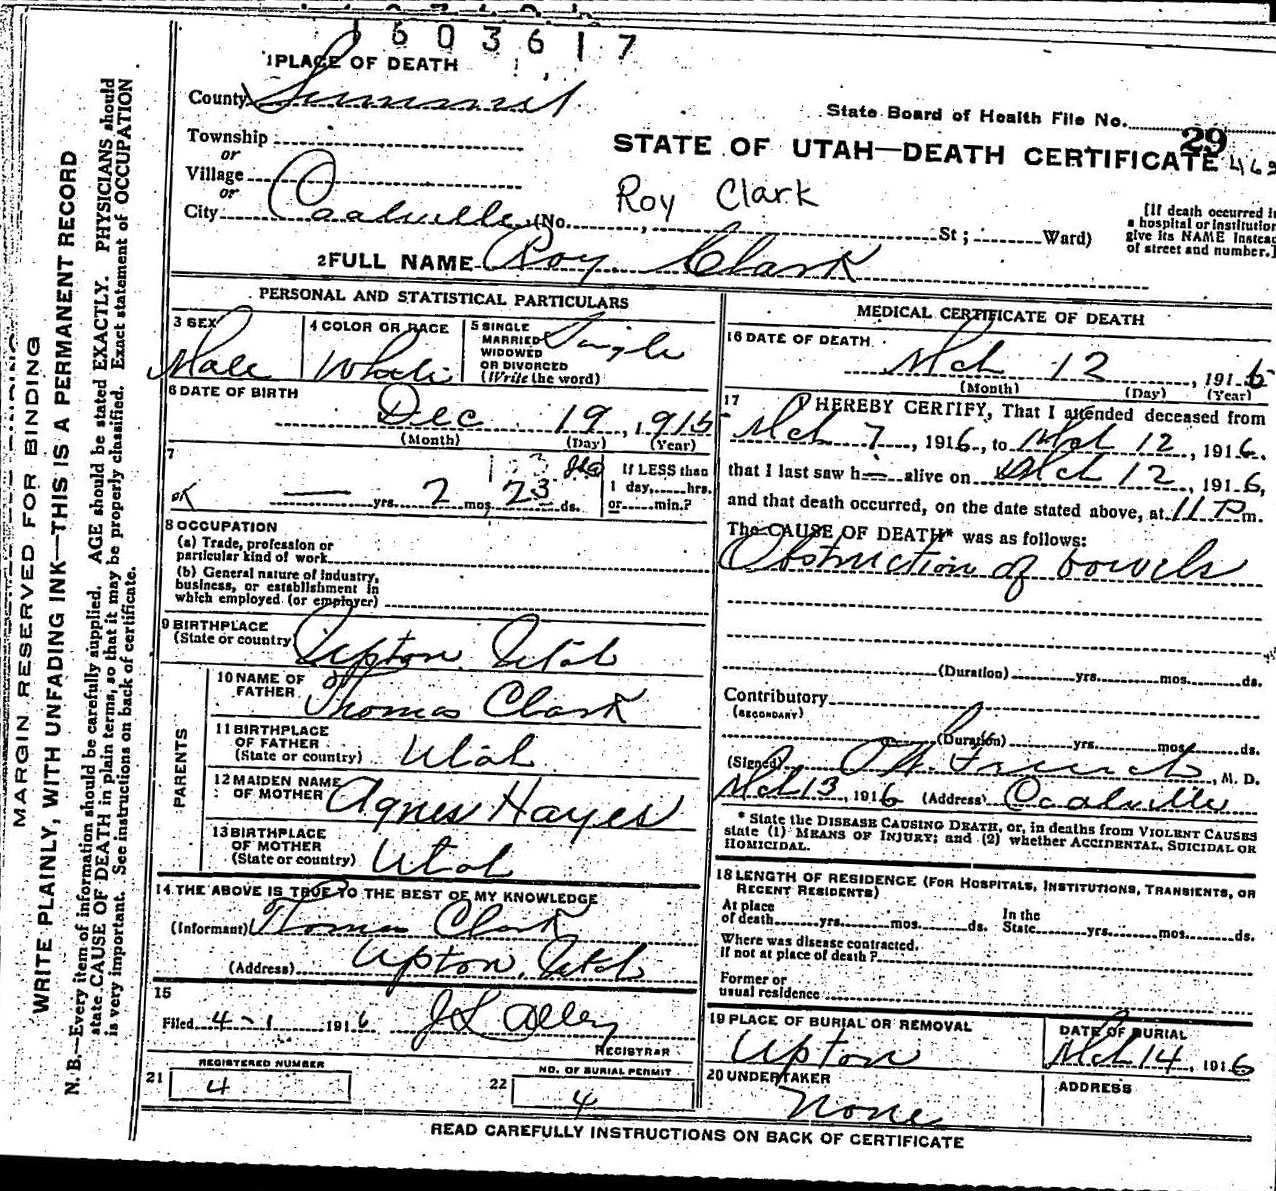 1603617
1 PLACE OF DEATH
County Summit
State Board of Health File No. 29
Township
STATE OF UTAH—DEATH CERTIFICATE 462
or
Village
or
City Coalville (No. , St ; Ward)
Roy Clark
[If death occurred in a hospital or institution give its NAME instead of street and number.]
2 FULL NAME Roy Clark
PERSONAL AND STATISTICAL PARTICULARS
3 SEX Male
4 COLOR OR RACE White
5 SINGLE MARRIED WIDOWED OR DIVORCED (Write the word) Single
6 DATE OF BIRTH
Dec 19, 1915
(Month) (Day) (Year)
7
— yrs. 2 mos. 23 ds.
If LESS than 1 day, hrs. or min.?
8 OCCUPATION
(a) Trade, profession or
particular kind of work
(b) General nature of industry,
business, or establishment in
which employed (or employer)
9 BIRTHPLACE
(State or country) Upton Utah
PARENTS
10 NAME OF FATHER Thomas Clark
11 BIRTHPLACE OF FATHER
(State or country) Utah
12 MAIDEN NAME OF MOTHER Agnes Hayes
13 BIRTHPLACE OF MOTHER
(State or country) Utah
14 THE ABOVE IS TRUE TO THE BEST OF MY KNOWLEDGE
(Informant) Thomas Clark
(Address) Upton, Utah
15
Filed 4-1 1916 J L Alley
REGISTRAR
REGISTERED NUMBER
21 4
NO. OF BURIAL PERMIT
22 4
MEDICAL CERTIFICATE OF DEATH
16 DATE OF DEATH
Mch 12, 1916
(Month) (Day) (Year)
17 I HEREBY CERTIFY, That I attended deceased from
Mch 7, 1916, to Mch 12, 1916.
that I last saw h— alive on Mch 12, 1916,
and that death occurred, on the date stated above, at 11 P m.
The CAUSE OF DEATH* was as follows:
Obstruction of bowels
(Duration) yrs. mos. ds.
Contributory
(SECONDARY)
(Duration) yrs. mos. ds.
(Signed) Frederick, M. D.
Mch 13, 1916 (Address) Coalville
* State the DISEASE CAUSING DEATH, or, in deaths from VIOLENT CAUSES
state (1) MEANS OF INJURY; and (2) whether ACCIDENTAL, SUICIDAL OR
HOMICIDAL.
18 LENGTH OF RESIDENCE (FOR HOSPITALS, INSTITUTIONS, TRANSIENTS, OR
RECENT RESIDENTS)
At place of death yrs. mos. ds. In the State yrs. mos. ds.
Where was disease contracted,
if not at place of death?
Former or
usual residence
19 PLACE OF BURIAL OR REMOVAL
Upton
DATE OF BURIAL
Mch 14, 1916
20 UNDERTAKER
None
ADDRESS
READ CAREFULLY INSTRUCTIONS ON BACK OF CERTIFICATE
MARGIN RESERVED FOR BINDING
WRITE PLAINLY, WITH UNFADING INK—THIS IS A PERMANENT RECORD
N. B.—Every item of information should be carefully supplied. AGE should be stated EXACTLY. PHYSICIANS should
state CAUSE OF DEATH in plain terms, so that it may be properly classified. Exact statement of OCCUPATION
is very important. See instructions on back of certificate.